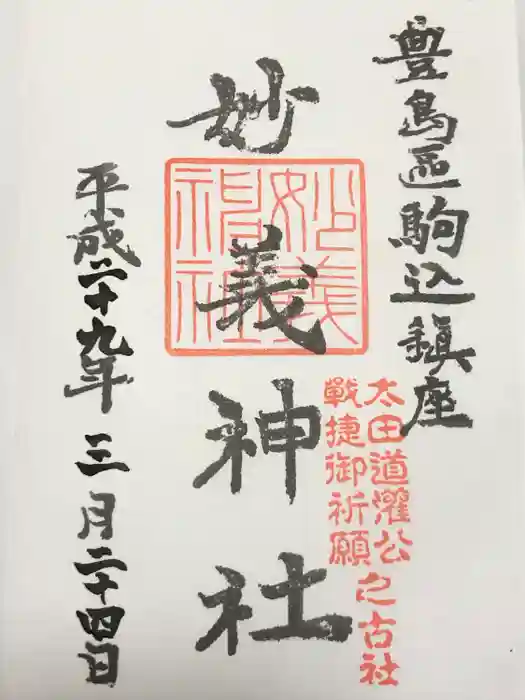 豊島區駒込鎮座
太田道灌公之古社
戰捷御祈願
妙義神社
妙義
神社
平成二十九年三月二十四日